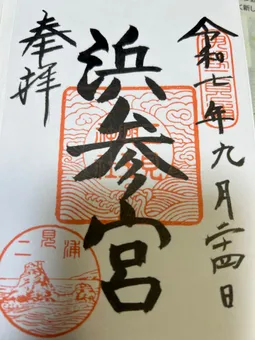 令和七年九月二十四日
浜参宮
奉拝
二見浦